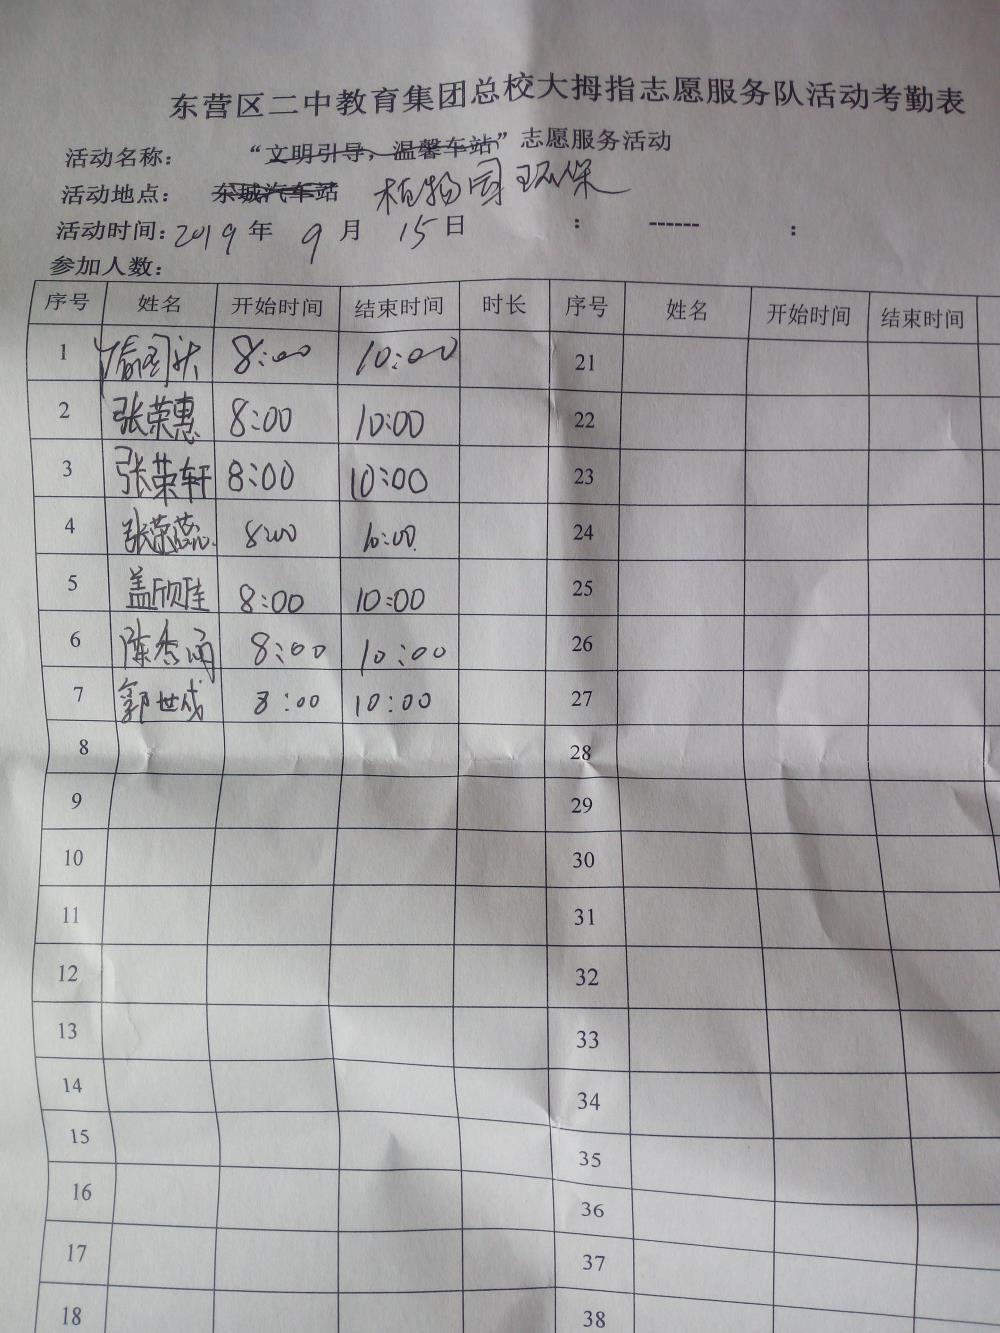 东营区二中教育集团总校大拇指志愿服务队活动考勤表
活动名称： “文明引导，温馨车站”志愿服务活动
活动地点： 东城汽车站 植物园环保
活动时间：2019年 9月 15日 ： ------ ：
参加人数：
序号 姓名 开始时间 结束时间 时长 序号 姓名 开始时间 结束时间
1 8:00 10:00 21
2 张荣惠 8:00 10:00 22
3 张荣轩 8:00 10:00 23
4 张荣蕊 8:00 10:00 24
5 盖欣佳 8:00 10:00 25
6 陈杰雨 8:00 10:00 26
7 郭世成 8:00 10:00 27
8 28
9 29
10 30
11 31
12 32
13 33
14 34
15 35
16 36
17 37
18 38